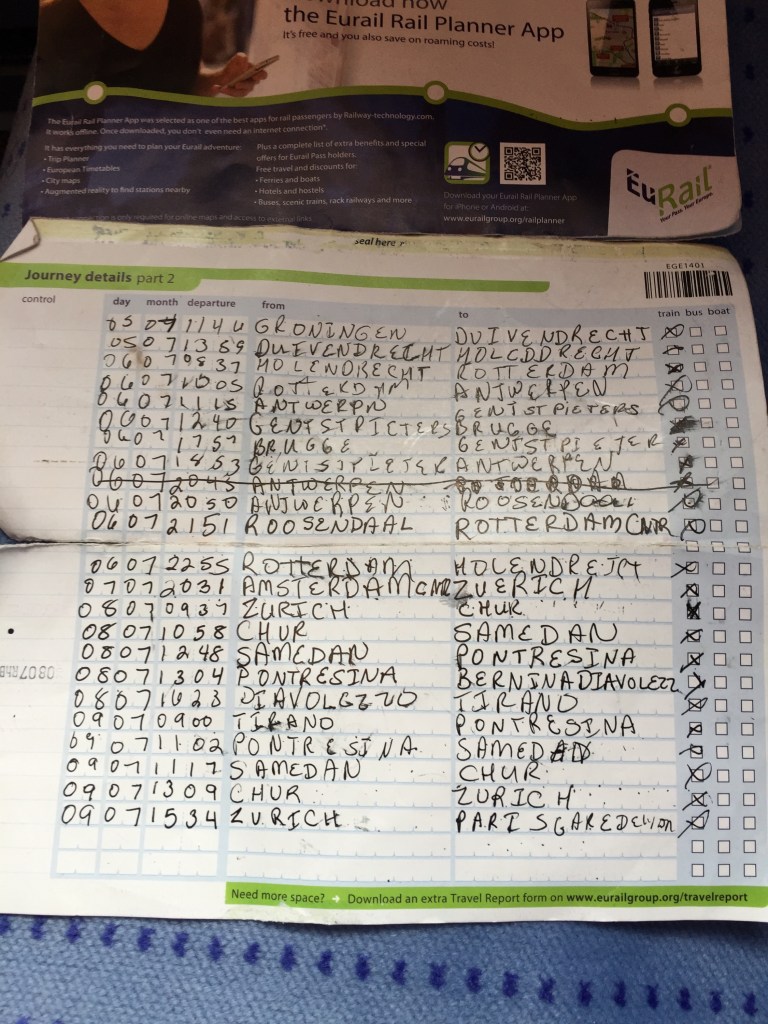 the Eurail Rail Planner App
It's free and you also save on roaming costs!
The Eurail Rail Planner App was selected as one of the best apps for rail passengers by Railway-technology.com.
It works offline. Once downloaded, you don't even need an internet connection*.
It has everything you need to plan your Eurail adventure:
• Trip Planner
• European Timetables
• City maps
• Augmented reality to find stations nearby
Plus a complete list of extra benefits and special
offers for Eurail Pass holders.
Free travel and discounts for:
• Ferries and boats
• Hotels and hostels
• Buses, scenic trains, rack railways and more
Download your Eurail Rail Planner App
for iPhone or Android at
www.eurailgroup.org/railplanner
EuRail
Your Pass. Your Europe.
is only required for online maps and access to external links
seal here
Journey details part 2
EGE1401
control day month departure from to train bus boat
05 07 1144 GRONINGEN DUIVENDRECHT
05 07 1359 DUIVENDRECHT
06 07 0937 HOLENDRECHT ROTTERDAM
06 07 1005 ROTTERDAM ANTWERPEN
06 07 1115 ANTWERPN GENTSTPIETERS
06 07 1240 GENTSTPICTERS BRUGGE
06 07 1757 BRUGGE GENTSTPIETER
06 07 1853 GENTSTPIETER ANTWERPEN
06 07 2045 ANTWERPEN
06 07 2050 ANTWERPEN
06 07 2151 ROOSENDAAL ROTTERDAMCNTR
06 07 2255 ROTTERDAM
07 07 2031 ZUERICH
08 07 0937 ZURICH CHUR
08 07 1058 CHUR SAMEDAN
08 07 1248 SAMEDAN PONTRESINA
08 07 1304 PONTRESINA BERNINADIAVOLEZZ
08 07 1623 TIRANO
09 07 0900 TIRANO PONTRESINA
09 07 1102 PONTRESINA SAMEDAN
09 07 1117 SAMEDAN CHUR
09 07 1309 CHUR ZURICH
09 07 1534 ZURICH PARISGAREDELYON
Need more space? → Download an extra Travel Report form on www.eurailgroup.org/travelreport